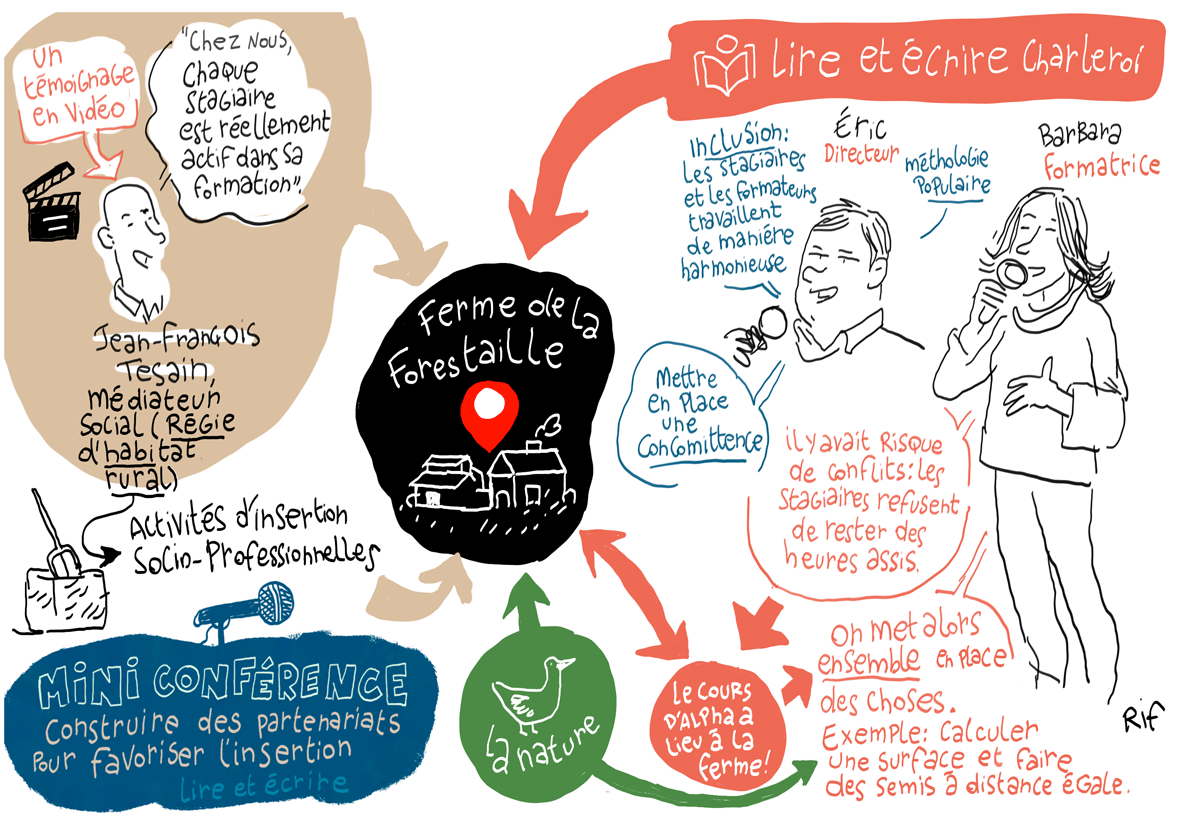 Un
témoignage
en vidéo
"Chez nous,
chaque
stagiaire
est réellement
actif dans sa
formation".
Jean-François
Tesain,
médiateur
social (Régie
d'habitat
rural)
Activités d'insertion
socio-professionnelles
MINI CONFÉRENCE
Construire des partenariats
pour favoriser l'insertion
Lire et écrire
Ferme de la
Forestaille
La nature
Lire et écrire Charleroi
Inclusion:
Les stagiaires
et les formateurs
travaillent
de maniére
harmonieuse
Éric
Directeur
méthologie
populaire
Barbara
formatrice
Mettre
en place
une
concomittence
il y avait risque
de conflits: les
stagiaires refusent
de rester des
heures assis.
Le cours
d'alpha a
lieu à la
ferme!
On met alors
ensemble en place
des choses.
Exemple: calculer
une surface et faire
des semis à distance égale.
Rif